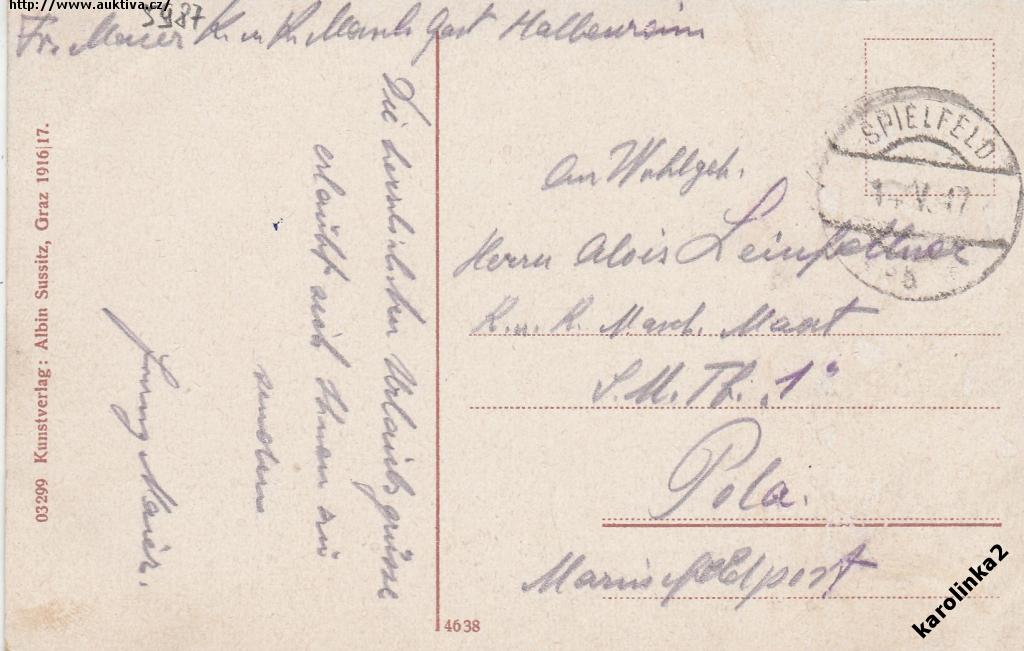 http://www.auktiva.cz/
5987
Fr. Maier K. u. K. Masch Gast Halbenrain
Die herzlichsten Urlaubsgrüsse
erlaubt sich Ihnen zu
senden
Franz Maier.
03299 Kunstverlag: Albin Sussitz, Graz 1916|17.
4638
SPIELFELD
14.V.17
An Wohlgeb.
Herrn Alois Leinfellner
K. u. K. Masch. Maat
S.M. Tb. „1"
Pola.
Marinefeldpost
karolinka2